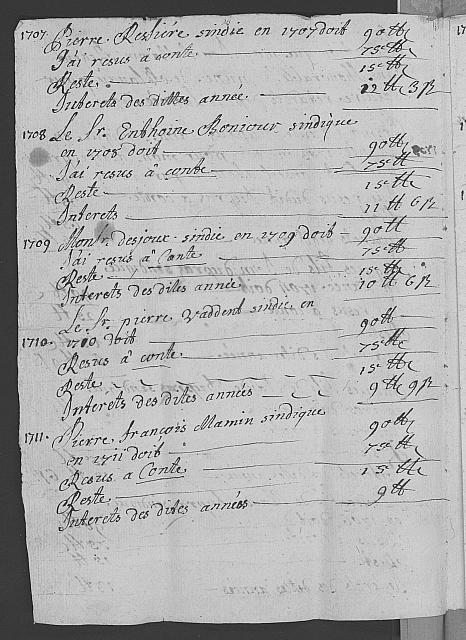 1707 Pierre Ressiére sindic en 1707 doit 90 tt
J'ai resus à conte 75 tt
Reste 15 tt
Interets des dittes année 12 tt 3 ß
1708 Le Sr. Enthoine Bonjour sindique
en 1708 doit 90 tt
J'ai resus à conte 75 tt
Reste 15 tt
Interets 11 tt 6 ß
1709 Monsr. desjoux sindic en 1709 doit 90 tt
J'ai resus à Conte 75 tt
Reste 15 tt
Interets des dites année 10 tt 6 ß
Le Sr. pierre Vaddent sindic en
1710. 1710 doit 90 tt
Resus à conte 75 tt
Reste 15 tt
Interets des dites années 9 tt 9 ß
1711. Pierre françois Mamin sindique
en 1711 doit 90 tt
Resus a Conte 75 tt
Reste 15 tt
Interets des dites années 9 tt